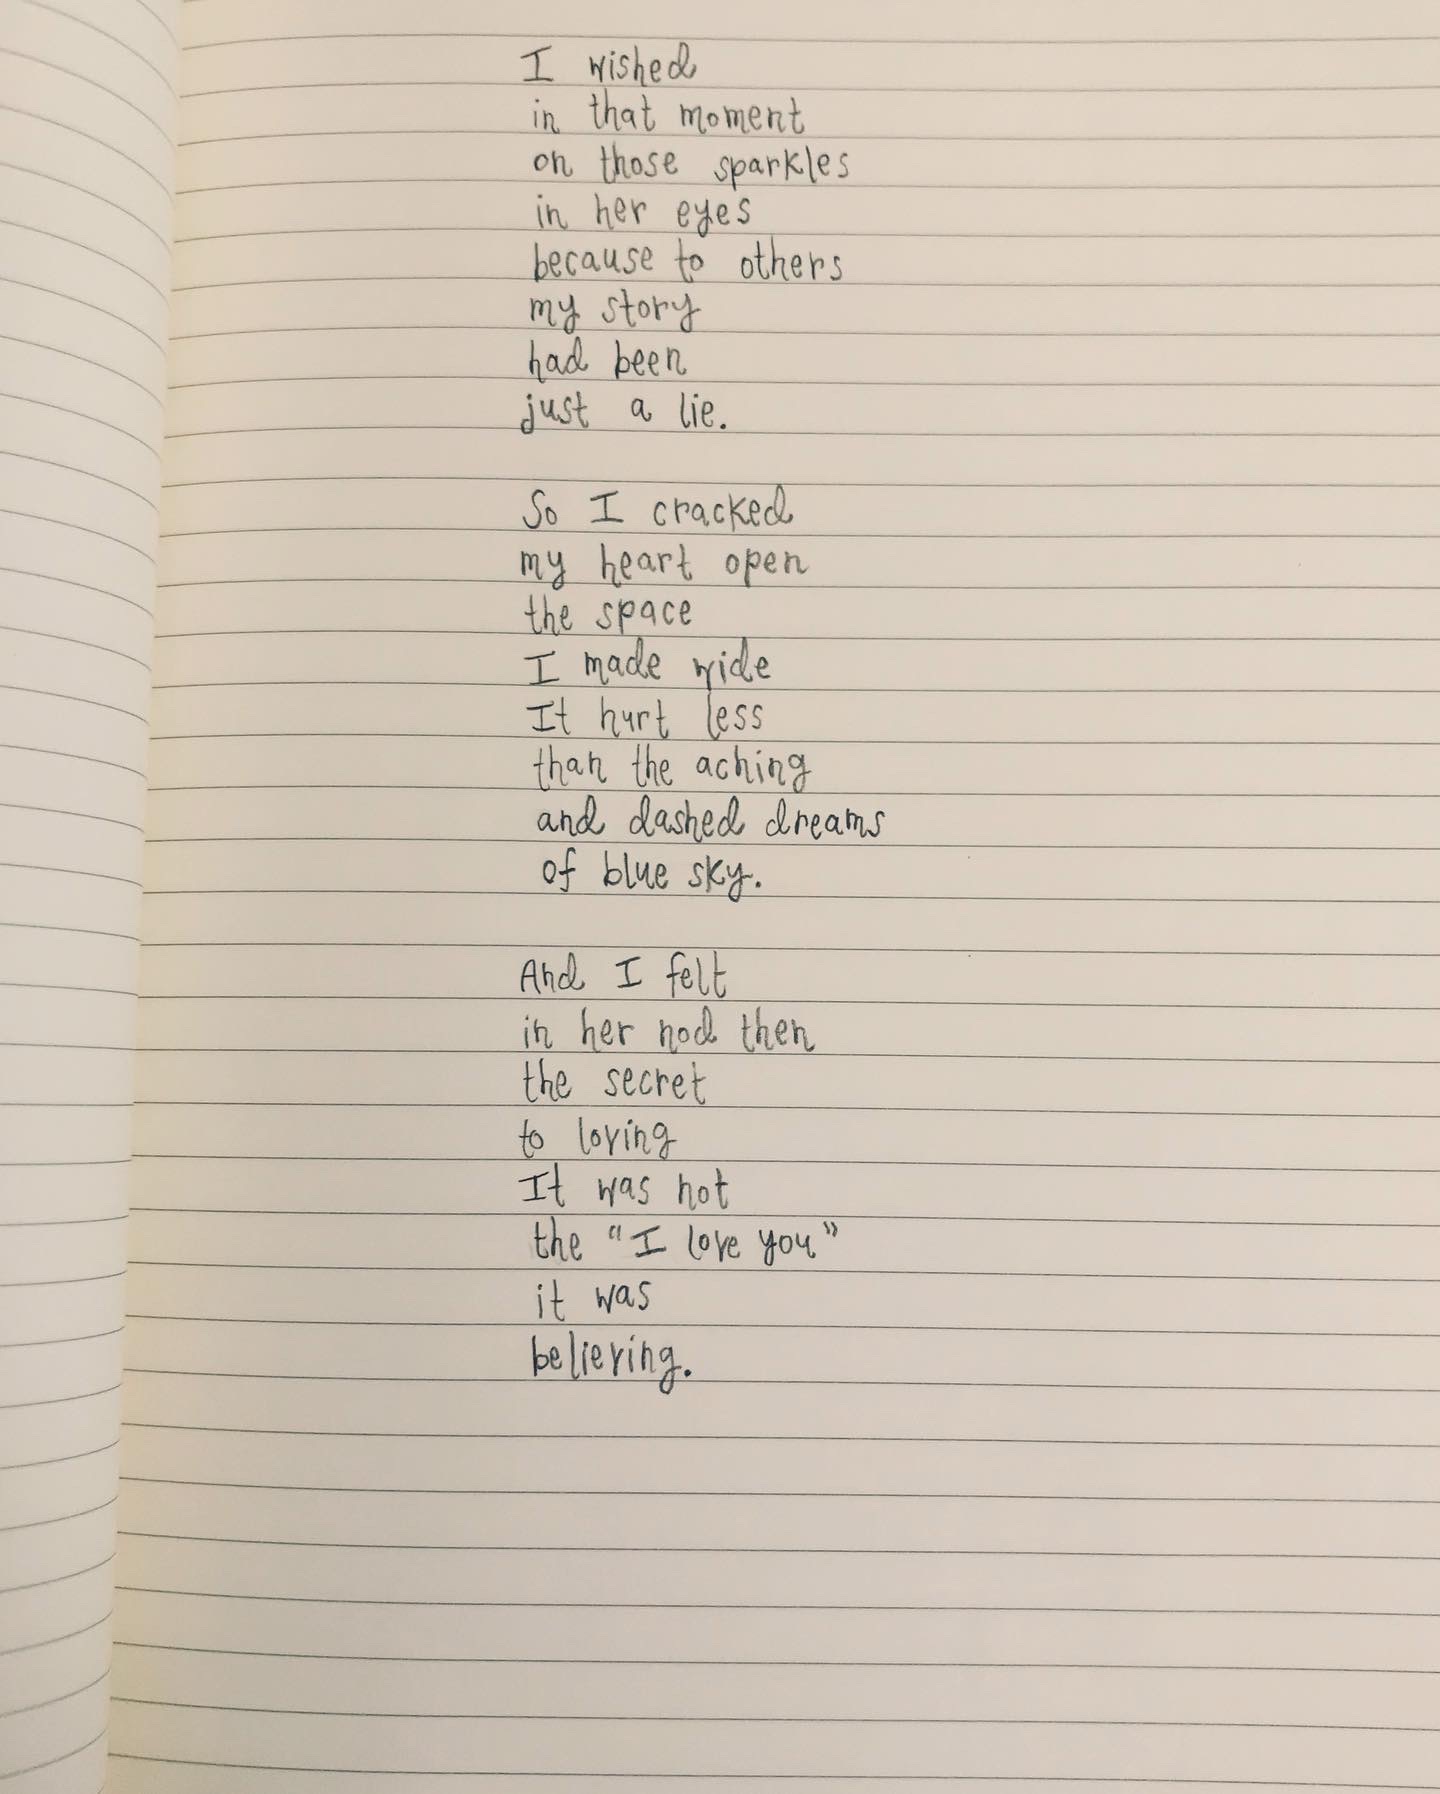 I wished
in that moment
on those sparkles
in her eyes
because to others
my story
had been
just a lie.
So I cracked
my heart open
the space
I made wide
It hurt less
than the aching
and dashed dreams
of blue sky.
And I felt
in her nod then
the secret
to loving
It was not
the “I love you”
it was
believing.